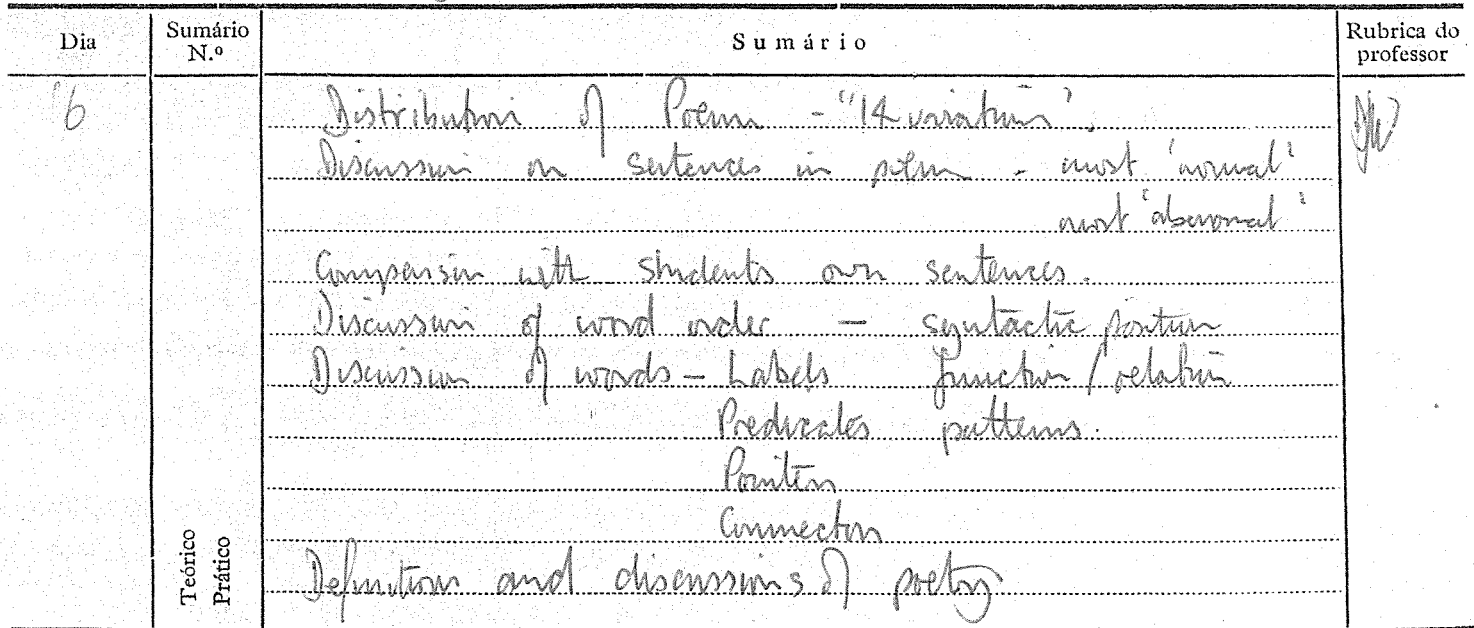 Dia Sumário N.º Sumário Rubrica do professor
6 Distribution of Poem - "14 variations".
Discussion on sentences in poem - most 'normal'
most 'abnormal'
Comparison with students own sentences.
Discussion of word order — syntactic position
Discussion of words - Labels function / relation
Predicates patterns.
Pointers
Connectors
Teórico
Prático
Definitions and discussions of poetry